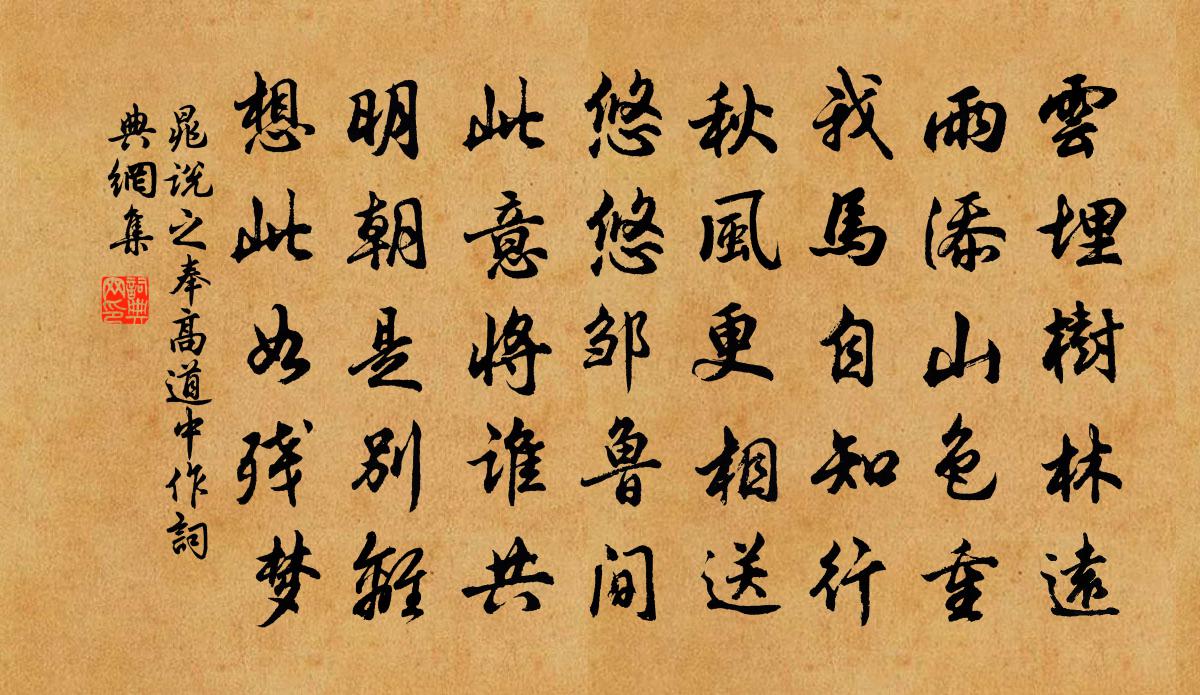 雲埋樹林遠
雨添山色重
我馬自知行
秋風更相送
悠悠邹魯间
此意将谁共
明朝是别離
想此如残梦
晁说之奉高道中作詞
典網集
詞典网印